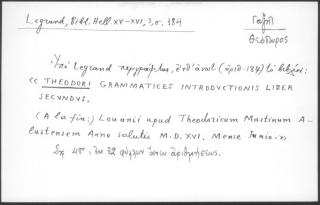 Legrand, Bibl. Hell XV-XVI, 3, σ. 184
Γαζῆς
Θεόδωρος
Ὑπὸ Legrand περιγράφεται, ἔνθ' ἀνωτ. (ἀριθ. 184) τὸ
<< THEODORI GRAMMATICES INTRODVCTIONIS LIBER
SECVNDVS.
(A la fin:) Louanii apud Theodoricum Martinum A-
lustensem Anno salutis M.D.XVI. Mense Junio.»
Σχ. 4ον, ἐκ 32 φύλλων ἄνευ ἀριθμήσεως.